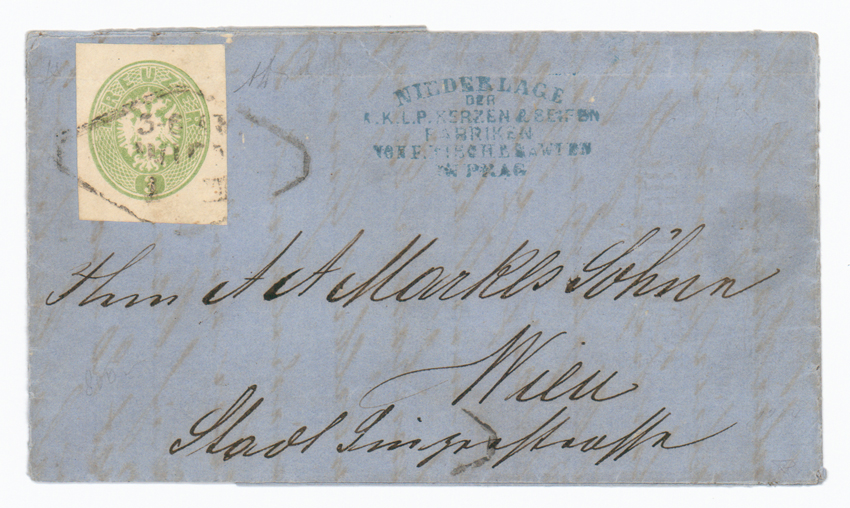 KREUZER
NIEDERLAGE
DER
K.K.L.P. KERZEN & SEIFEN
FABRIKEN
VON F. A. WIEN
IN PRAG
Herrn A A Markls Söhne
Wien
Stadt Singerstrasse